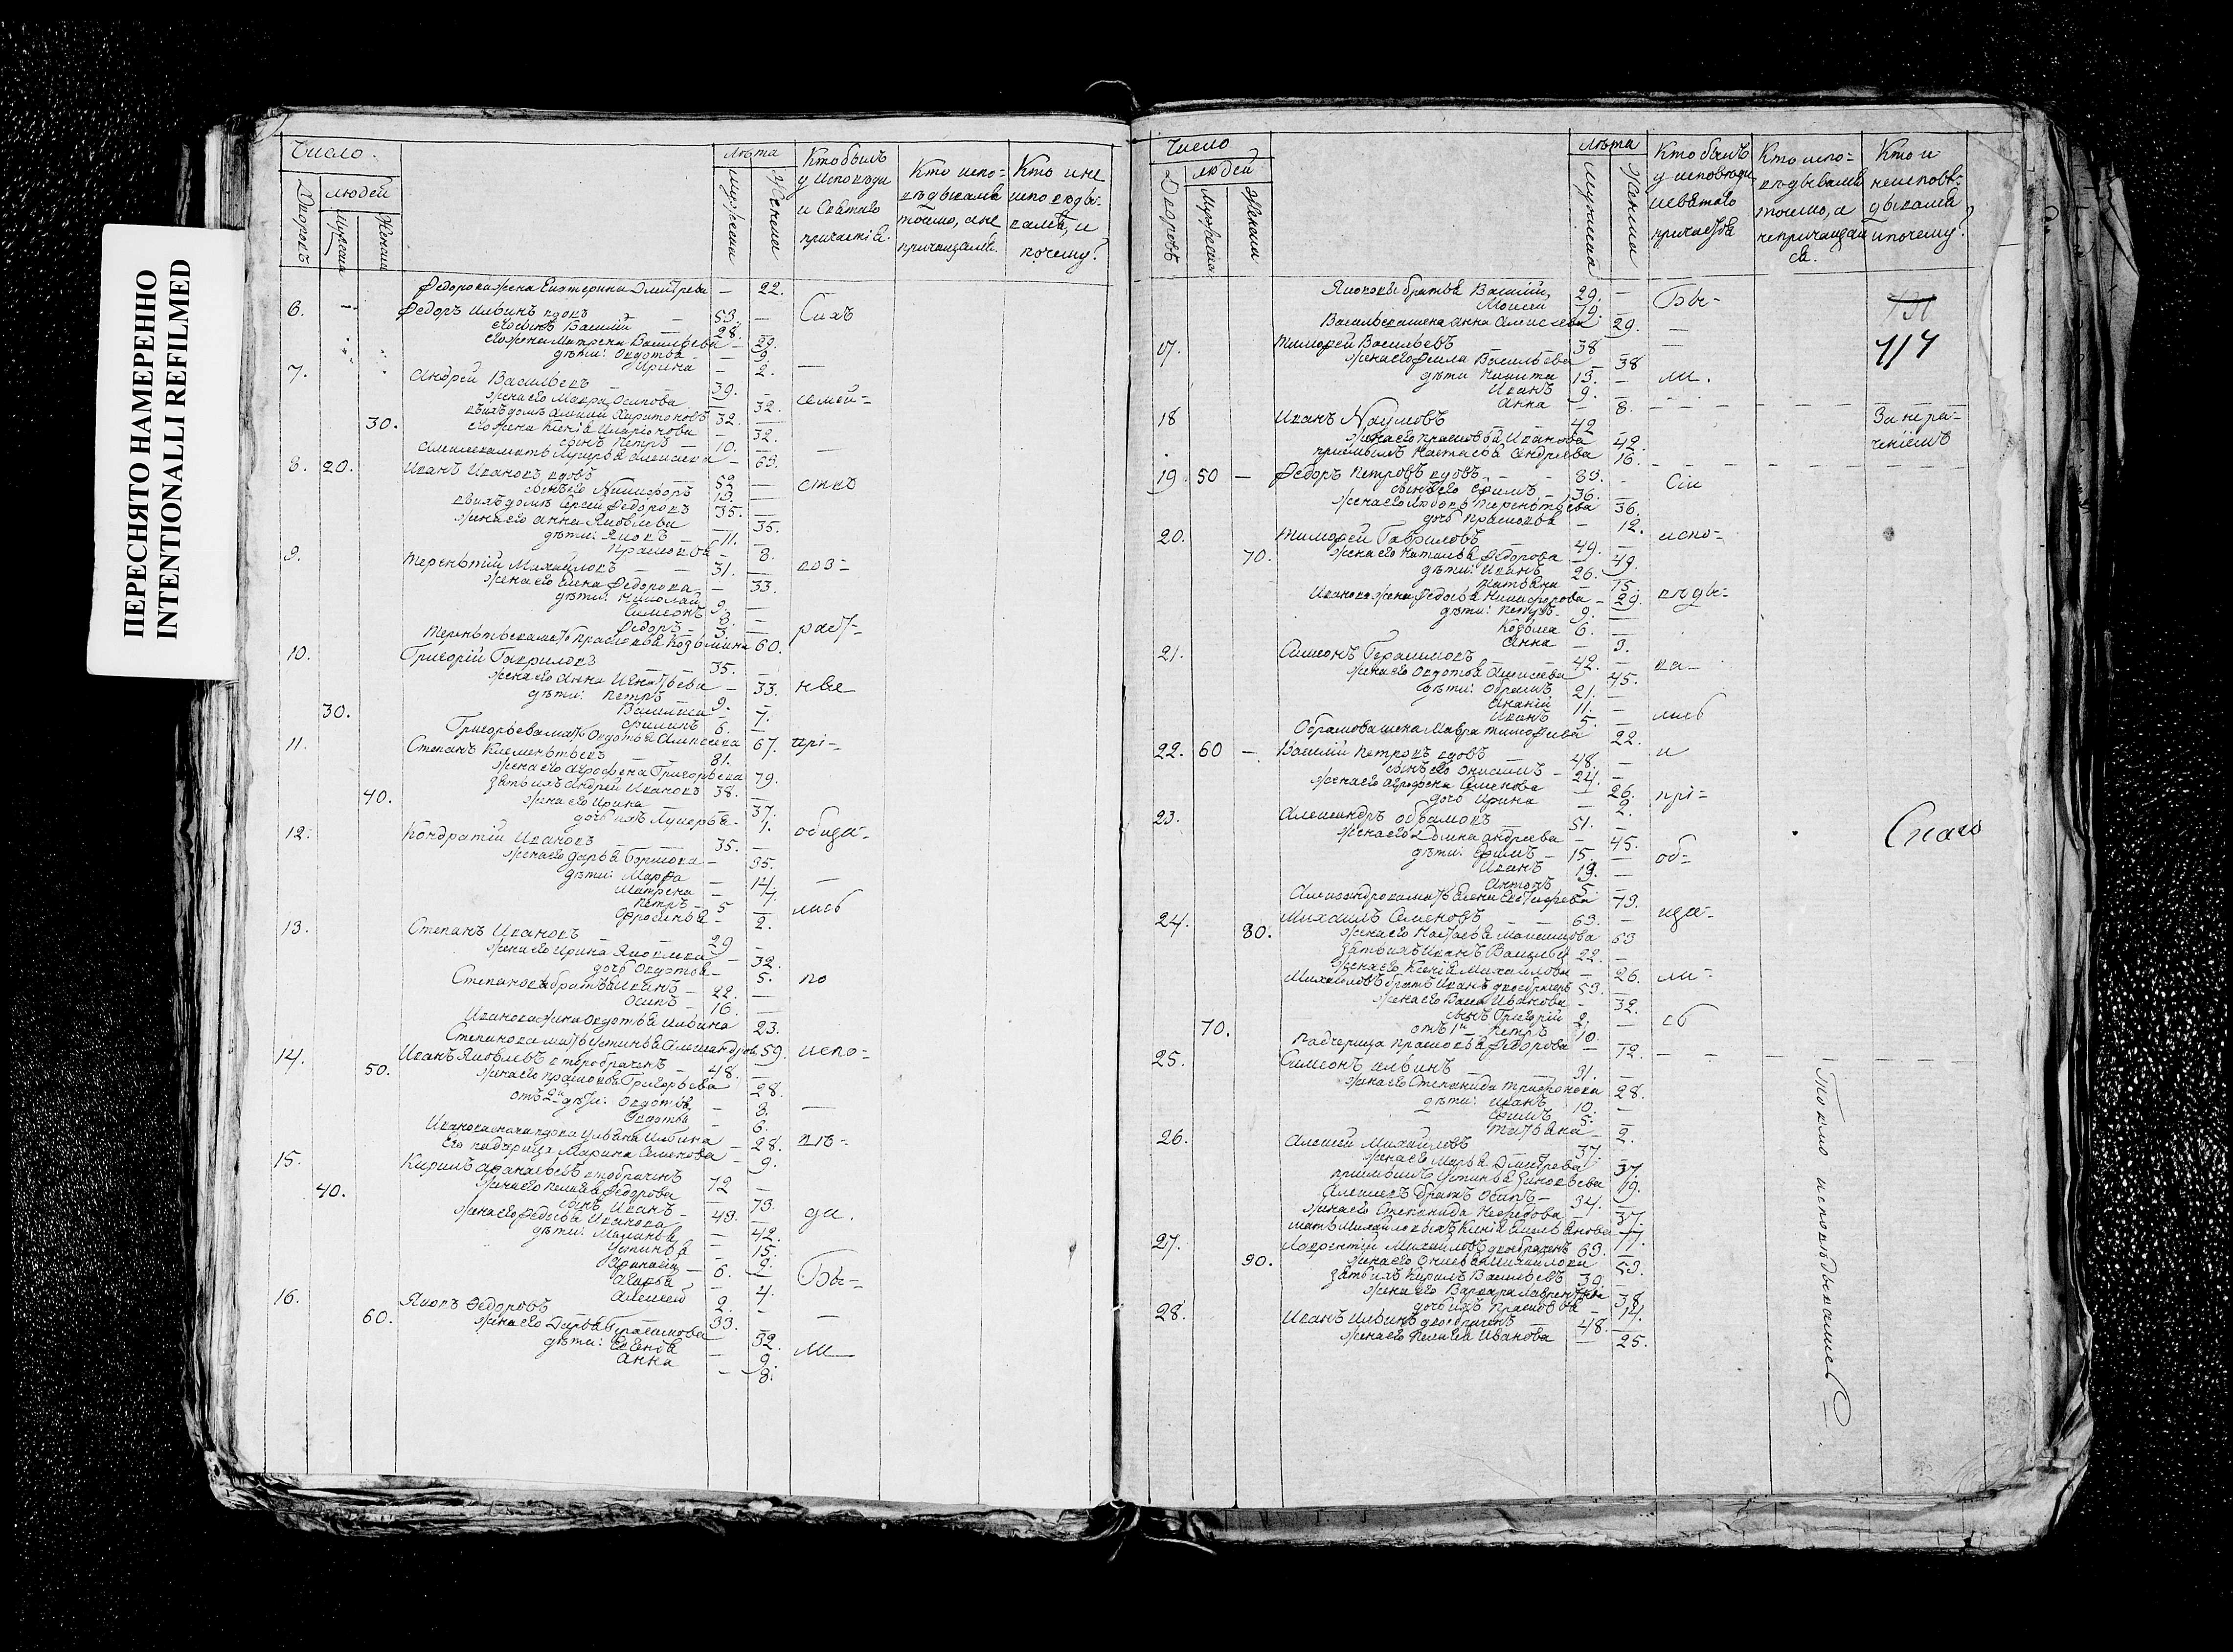 ПЕРЕСНЯТО НАМЕРЕННО
INTENTIONALLI REFILMED
Число.
Дворовъ
людей
Мужеска
Женска
лѣта
мужеска
Женска
Кто былъ
у исповѣди
и Святаго
причастія.
Кто испо-
вѣдывался
точію, а не
причащался.
Кто и не
исповѣды-
вался, и
почему?
Федорова жена Екатерина Дмитрева — 22.
6. Федоръ Ильинъ вдовъ 53. — Сихъ
его сынъ Василій 28.
его жена Матрена Васильева — 29.
дѣти: Овдотья — 9.
Ирина — 2.
7. Андрей Васильевъ 39.
жена его Мавра Осипова — 32. семей-
въ ихъ домѣ Алексій Харитоновъ 32.
30. его жена Ксенія Иларіонова — 32.
сынъ Петръ 10.
Алексѣева мать Лукерья Алексѣева — 63.
8. 20. Иванъ Ивановъ вдовъ 52 — ства
сынъ его Никифоръ 13.
въ ихъ домѣ Сергей Федоровъ 35.
жена его Анна Яковлева — 35.
дѣти: Яковъ 11.
Прасковья — 8.
9. Терентій Михайловъ 31. — воз-
жена его Елена Федорова — 33.
дѣти: Николай 9.
Симеонъ 8.
Федоръ 3.
Терентьева мать Прасковья Козьмина 60. раст-
10. Григорій Гавриловъ 35.
жена его Анна Игнатьева — 33. ные
дѣти: Петръ 9.
Василиса — 7.
30. Филипъ 6.
Григорьева мать Овдотья Алексѣева 67. прі-
11. Степанъ Клементьевъ 81.
жена его Агрофена Григорьева 79.
зять ихъ Андрей Ивановъ 38.
40. жена его Ирина — 37.
дочь ихъ Лукерья — 1.
12. Кондратій Ивановъ 35. обща-
жена его Дарья Борисова — 35.
дѣти: Марфа — 14
Матрена — 7.
Петръ 5
Фросинья — 2. лись
13. Степанъ Ивановъ 29
жена его Ирина Яковлева — 32.
дочь Овдотья — 5. по
Степановы братья Иванъ 22.
Осипъ 16.
Иванова жена Овдотья Ильина 23.
Степанова мать Устинья Александров. 59. испо-
14. Иванъ Яковлевъ второбраченъ 48.
50. жена его Прасковья Григорьева 28.
отъ 2й дѣти: Овдотья — 8.
Овдотья — 6.
Иванова сноха вдова Ульяна Ильина — 28. вѣ-
Его падчерица Марина Семенова — 9.
15. Кирилъ Афанасьевъ втобраченъ 72
жена его Пелагея Федорова 73.
40. сынъ Иванъ 43. ди.
жена его Федосья Иванова 42.
дѣти: Маланья — 15.
Устинья — 9.
Афанасій 6.
Агафья — 4. Бы-
Алексей 2.
16. Яковъ Федоровъ 33.
60. жена его Дарья Герасимова 32.
дѣти: Евгенья — 9. ли
Анна — 8.
Число
Дворовъ
людей
Мужеска
Женска
лѣта
Мужеска
Женска
Кто былъ
у исповѣди
и святаго
причастія
Кто испо-
вѣдывался
точію, а
не причащал
ся.
Кто и
не исповѣ-
дывался
и почему?
Яковлевы братья Василій, 29. — Бы-
Моисей 19.
Васильева жена Анна Алексѣева 29.
114
17. Тимофей Васильевъ 38
жена его Фекла Васильева — 38
дѣти Никита 13. ли.
Иванъ 9.
Анна — 8.
18 Иванъ Наумовъ 42 За нера-
жена его Прасковья Иванова 42. чніемъ
приемышъ Настасья Андреева 16.
19. 50 — Федоръ Петровъ вдовъ 83. Сіи
сынъ его Ефимъ 36.
жена его Любовь Терентьева 36.
дочь Прасковья — 12.
20. Тимофей Гавриловъ 49. испо-
70. жена его Наталья Федорова 49.
дѣти: Иванъ 26.
Татьяна — 15
Иванова жена Федосья Никифорова — 29. вѣды-
дѣти: Петръ 9.
Козьма 6.
Анна — 3.
21. Симеонъ Герасимовъ 42. ва-
жена его Овдотья Алексеева 45.
дѣти: Обрамъ 21.
Ананій 11.
Иванъ 5. лись
Обрамова жена Мавра Тимофеева 22.
22. 60 — Василій Петровъ вдовъ 48. и
сынъ его Онисимъ 24.
жена его Агрофена Семенова — 26.
дочь Ирина — 2. прі-
23. Александръ Обрамовъ 51.
жена его Домна Андреева 45.
дѣти: Ефимъ 15. об-
Иванъ 19.
Антонъ 5.
Спасъ
Александрова мать Елена Евстифеева 73.
24. Михаилъ Семеновъ 63. ща-
80. жена его Настасья Максимова 63
зять ихъ Иванъ Васильевъ 22.
жена его Ксенія Михайлова — 26. ли-
Михаиловъ братъ Иванъ двоебраченъ 53.
жена его Васса Иванова — 32.
сынъ Григорій 2. сь
70. отъ 1й Петръ 10.
падчерица Прасковья Федорова — 12.
25. Симеонъ Ильинъ 31.
жена его Степанида Трифонова 28.
дѣти: Иванъ 10.
Ефимъ 5.
Татьяна 2.
Токмо исповѣдывались
26. Алексій Михайловъ 37.
жена его Марья Дмитрева 37
приемышъ Устинья Зиновьева 19.
Алексѣевъ братъ Осипъ 34.
жена его Степанида Нефедова 37.
мать Михайловыхъ Ксенія Емельянова 77.
27. Лаврентій Михайловъ двоебраченъ 63.
90. жена его Михайлова 53.
зять ихъ Кирилъ Васильевъ 39.
жена его Варвара Лаврентьева 38
дочь ихъ Прасковья — 14.
28. Иванъ Ильинъ двоебраченъ 48.
жена его Пелагея Иванова — 25.